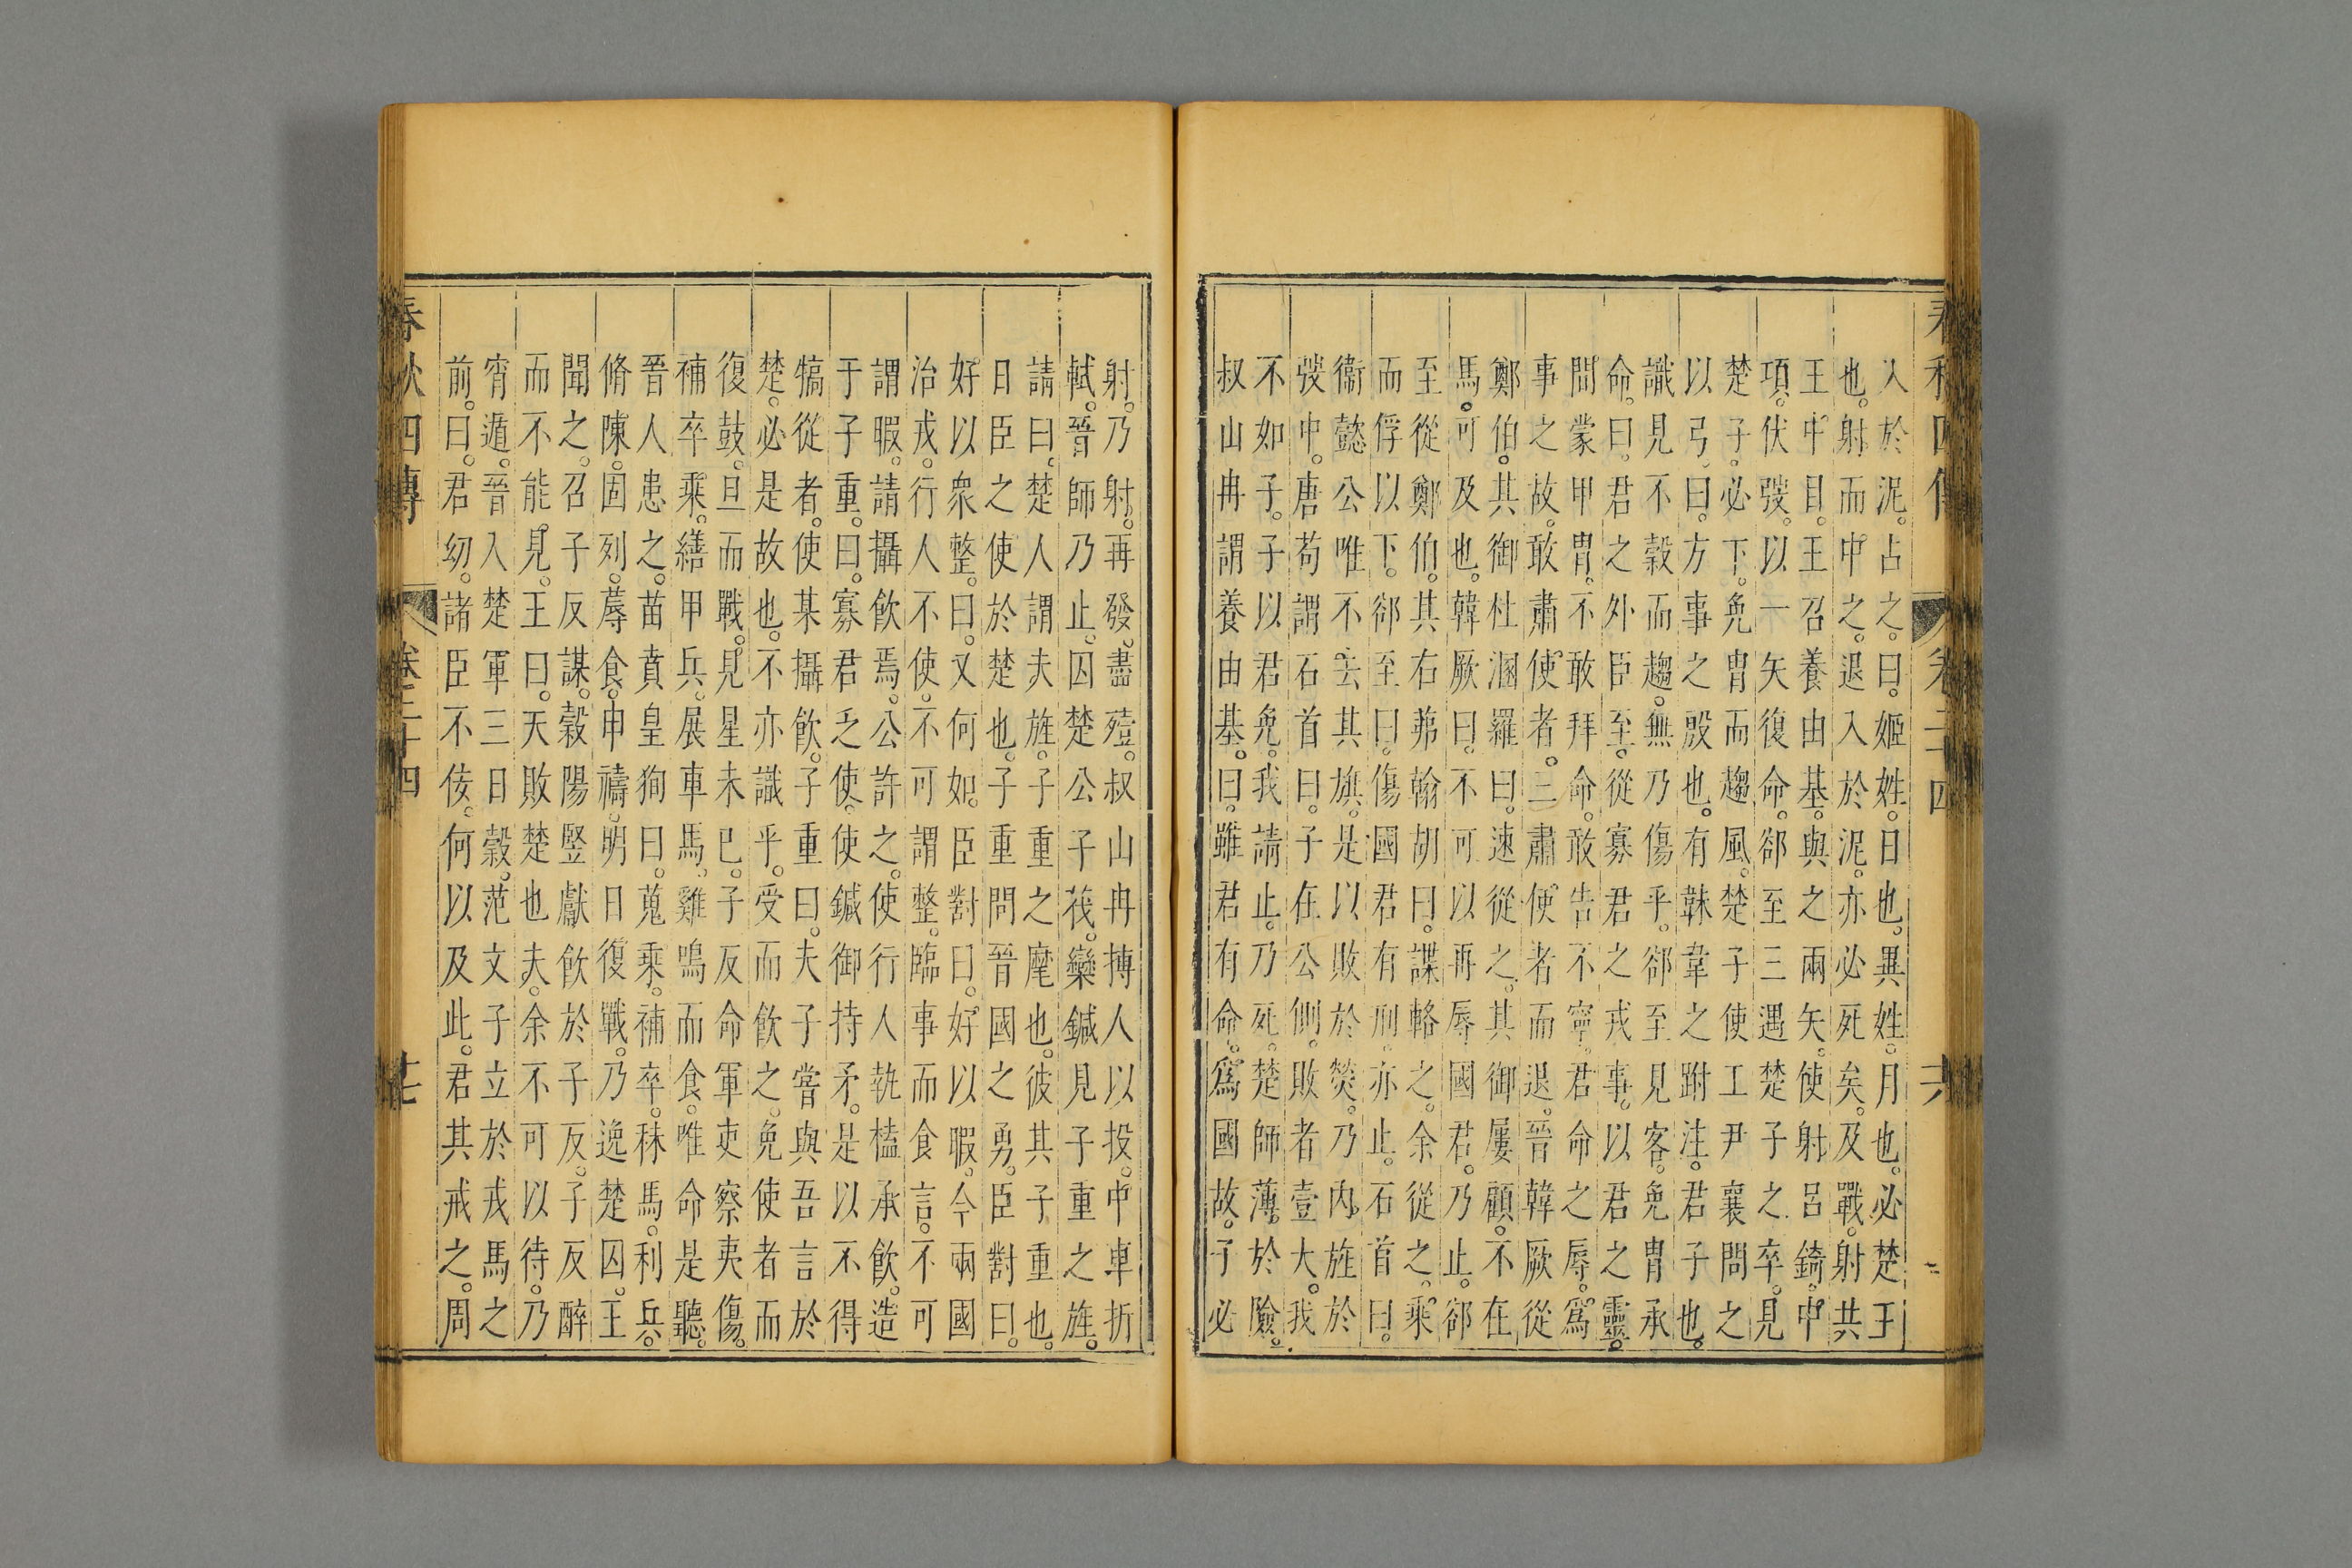 春秋四傳 卷二十四 六
入於泥。占之。曰。姬姓。日也。異姓。月也。必楚王
也。射而中之。退入於泥。亦必死矣。及戰。射共
王中目。王召養由基。與之兩矢。使射呂錡。中
項。伏弢。以一矢復命。郤至三遇楚子之卒。見
楚子。必下。免冑而趨風。楚子使工尹襄問之
以弓。曰。方事之殷也。有韎韋之跗注。君子也。
識見不穀而趨。無乃傷乎。郤至見客。免冑承
命。曰。君之外臣至。從寡君之戎事。以君之靈。
間蒙甲冑。不敢拜命。敢告不寧。君命之辱。爲
事之故。敢肅使者。三肅使者而退。晉韓厥從
鄭伯。其御杜溷羅曰。速從之。其御屢顧。不在
馬。可及也。韓厥曰。不可以再辱國君。乃止。郤
至從鄭伯。其右茀翰胡曰。諜輅之。余從之。乘
而俘以下。郤至曰。傷國君有刑。亦止。石首曰。
衞懿公唯不去其旗。是以敗於熒。乃內旌於
弢中。唐苟謂石首曰。子在公側。敗者壹大。我
不如子。子以君免。我請止。乃死。楚師薄於險。
叔山冉謂養由基。曰。雖君有命。爲國故。子必
射。乃射。再發。盡殪。叔山冉搏人以投。中車折
軾。晉師乃止。囚楚公子茷。欒鍼見子重之旌。
請曰。楚人謂夫旌。子重之麾也。彼其子重也。
日臣之使於楚也。子重問晉國之勇。臣對曰。
好以衆整。曰。又何如。臣對曰。好以暇。今兩國
治戎。行人不使。不可謂整。臨事而食言。不可
謂暇。請攝飲焉。公許之。使行人執榼承飲。造
于子重。曰。寡君乏使。使鍼御持矛。是以不得
犒從者。使某攝飲。子重曰。夫子嘗與吾言於
楚。必是故也。不亦識乎。受而飲之。免使者而
復鼓。旦而戰。見星未已。子反命軍吏察夷傷。
補卒乘。繕甲兵。展車馬。雞鳴而食。唯命是聽。
晉人患之。苗賁皇狥曰。蒐乘。補卒。秣馬。利兵。
脩陳。固列。蓐食。申禱。明日復戰。乃逸楚囚。王
聞之。召子反謀。穀陽豎獻飲於子反。子反醉
而不能見。王曰。天敗楚也夫。余不可以待。乃
宵遁。晉入楚軍三日穀。范文子立於戎馬之
前。曰。君幼。諸臣不佞。何以及此。君其戒之。周
春秋四傳 卷二十四 七